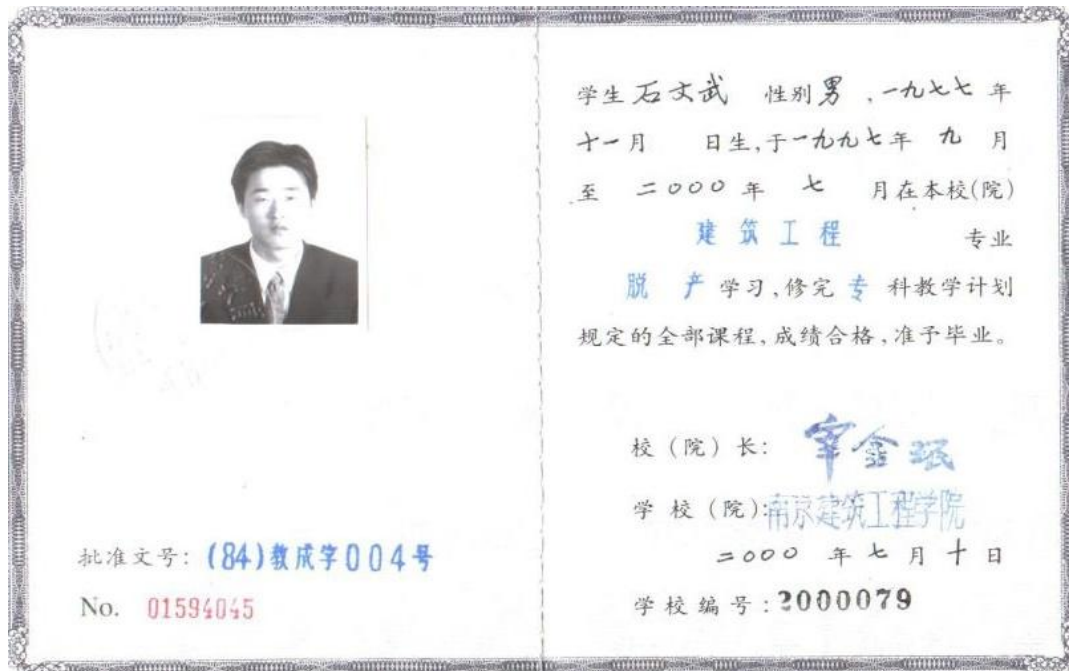 批准文号：(84)教成字004号
No. 01594045
学生石文武 性别男，一九七七年
十一月 日生，于一九九七年 九 月
至 二000 年 七 月在本校(院)
建筑工程 专业
脱产学习，修完专科教学计划
规定的全部课程，成绩合格，准予毕业。
校（院）长： 金珉
学校（院）：南京建筑工程学院
二000 年七月十日
学校编号：2000079